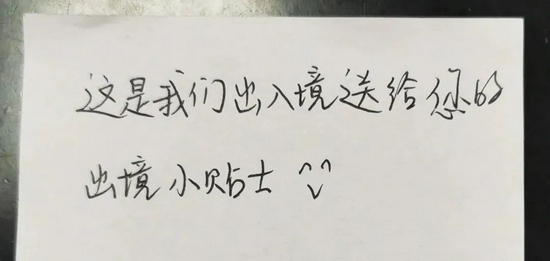 这是我们出入境送给您的
出境小贴士 ^^